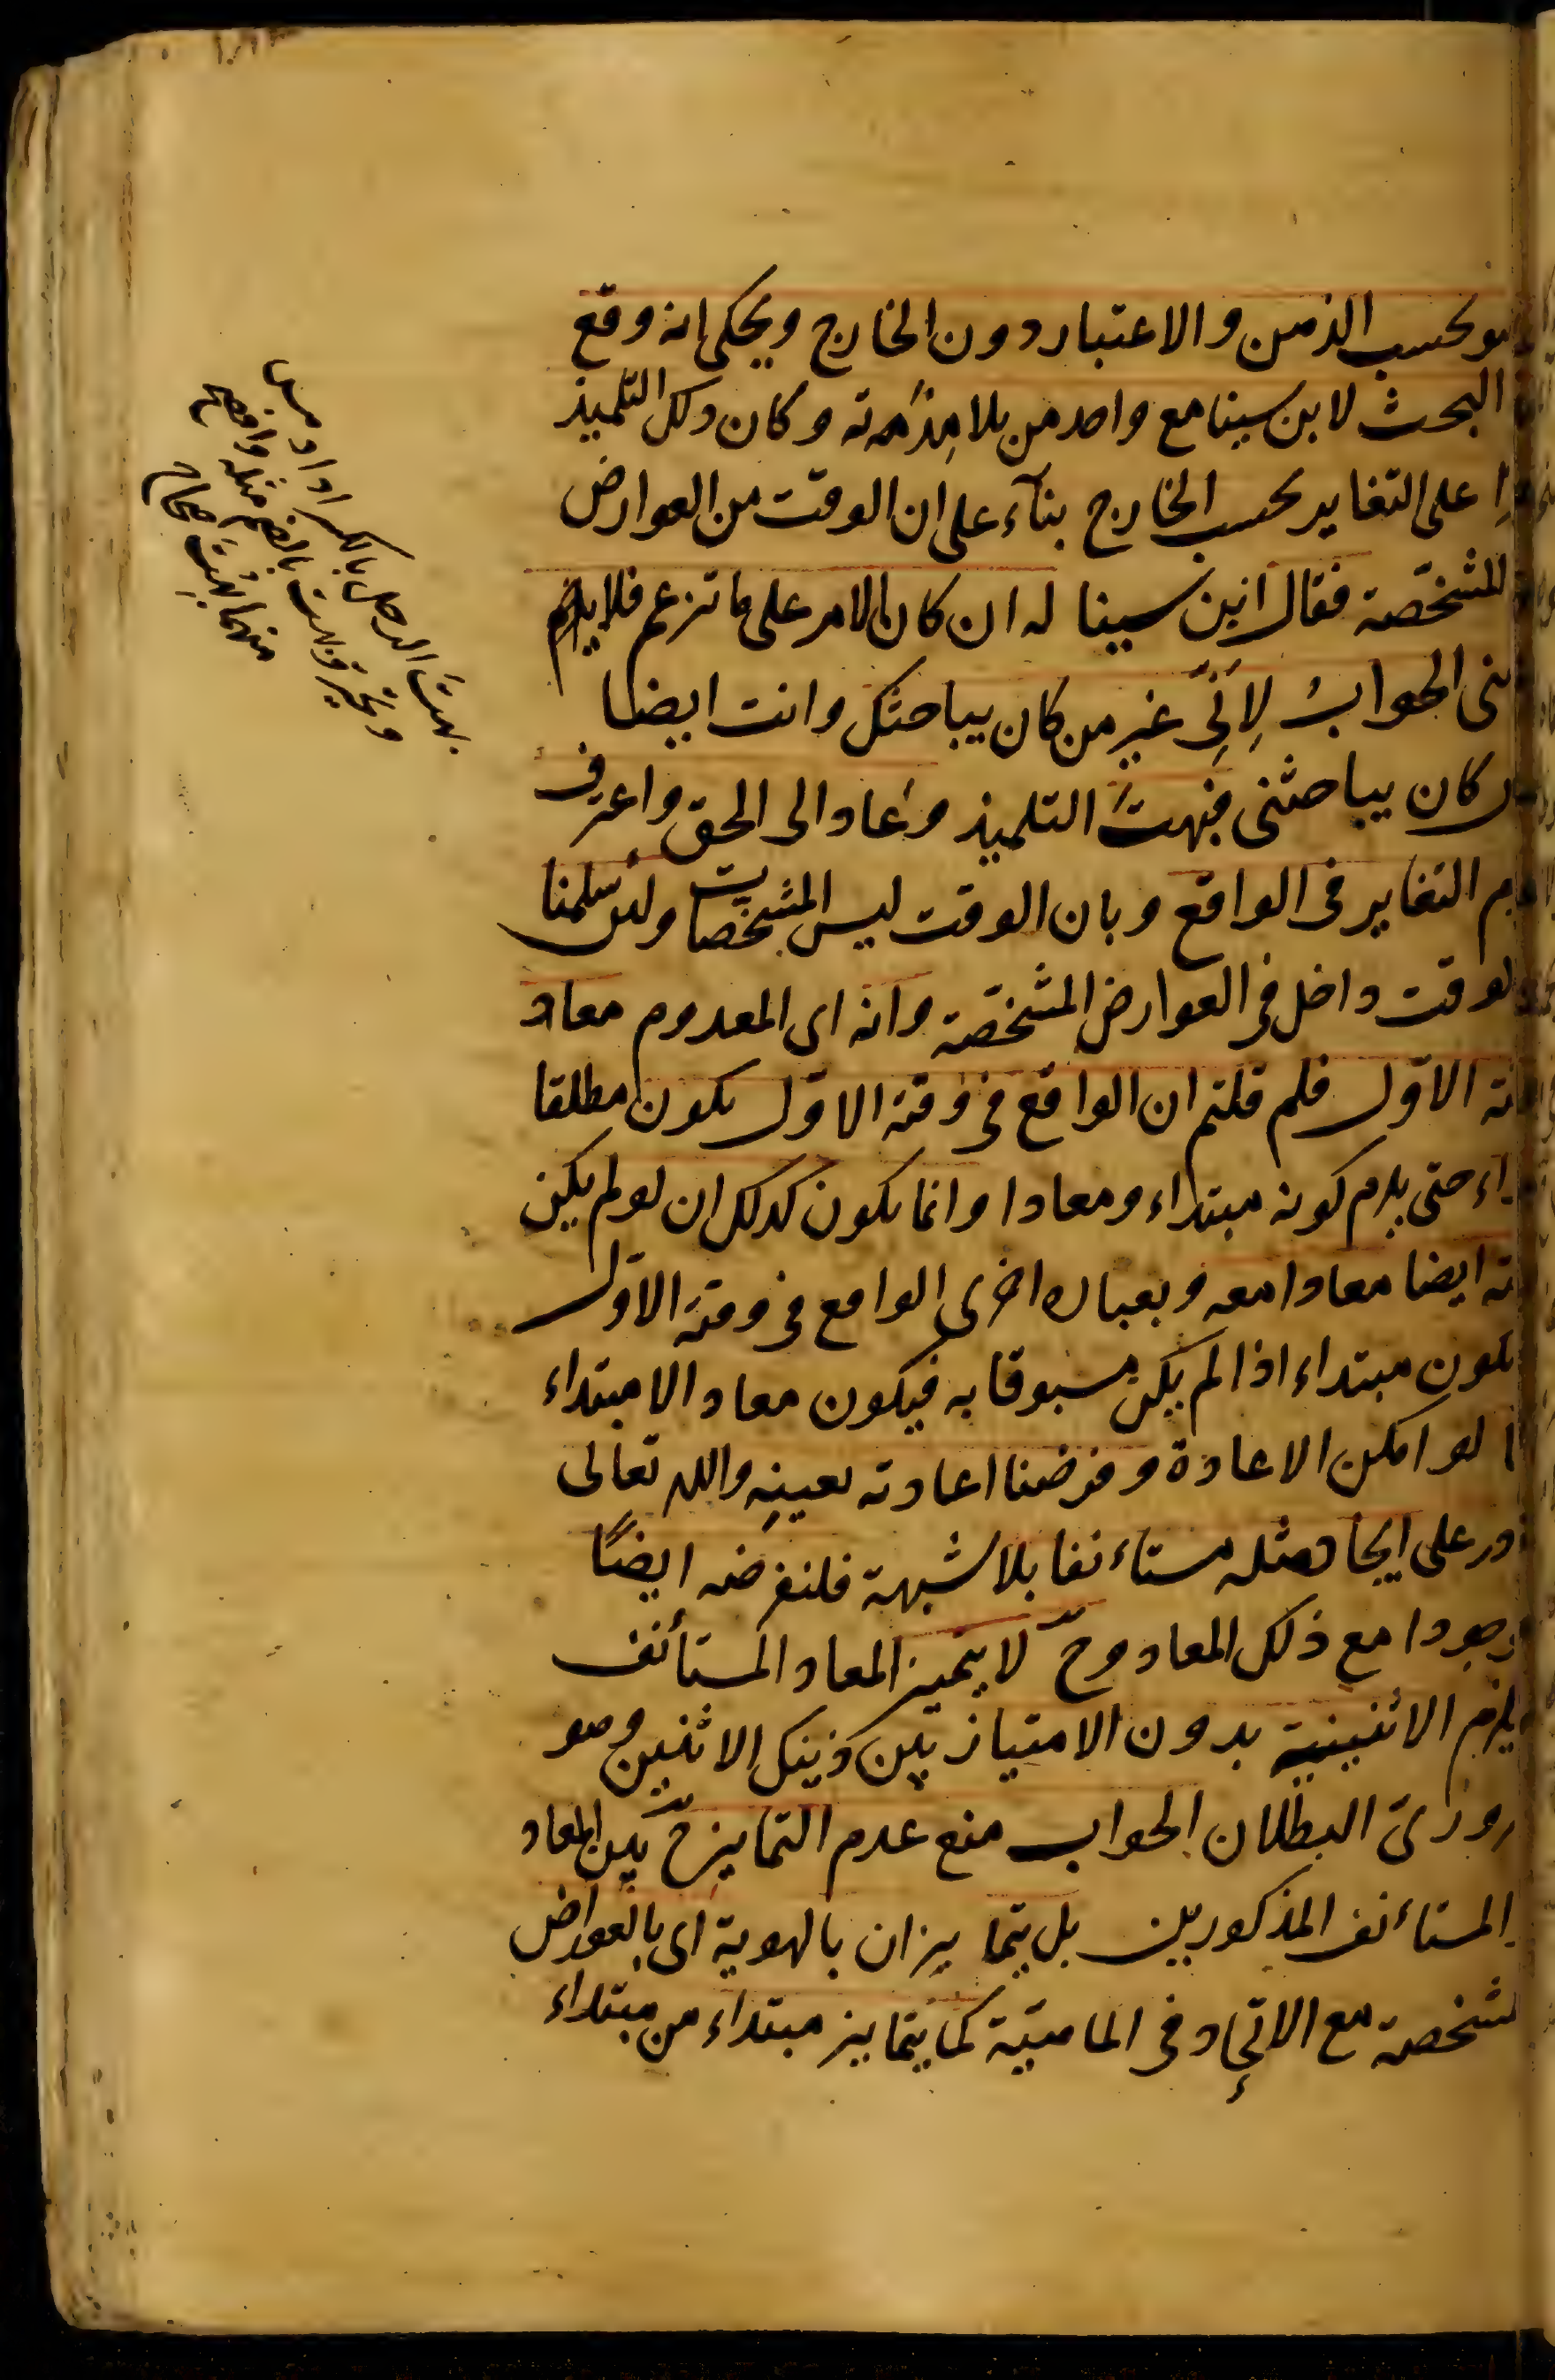 هو بحسب الذهن والاعتبار دون الخارج ويحكى انه وقع
البحث لابن سينا مع واحد من تلامِذَته وكان ذلك التلميذ
على التغاير بحسب الخارج بناءً على ان الوقت من العوارض
المشخّصة فقال ابن سينا له ان كان الامر على ما تزعم فلا يلزم
الجوابُ لِأَنِّى غير من كان يباحثك وانت ايضا
كان يباحثنى فبهتَ التلميذ وعَاد الى الحق واعترف
التغاير فى الواقع وبان الوقت ليس المشخصات ولئن سلمنا
الوقت داخل فى العوارض المشخّصة وانه اى المعدوم معاد
الاوّل فلم قلتم ان الواقع فى وقته الاوّل يكون مطلقا
حتى يلزم كونه مبتداء ومعادا وانما يكون كذلك ان لو لم يكن
ايضا معادا معه وبعبارة اخرى الواقع فى وقته الاوّل
يكون مبتداء اذا لم يكن مسبوقا به فيكون معادا لا مبتداء
لو امكن الاعادة وفرضنا اعادته بعينِهِ والله تعالى
على ايجاد مثله مستاءنفا بلا شبهة فلنفرضه ايضًا
موجودا مع ذلك المعاد وحّ لا يتميز المعاد المستأنف
يلزم الاثنينية بدون الامتياز بين ذينك الاثنين وهو
البطلان الجواب منع عدم التمايز حّ بين المعاد
المستاءنف المذكورين بل يتمايزان بالهوية اى بالعوارض
المشخصة مع الاتحاد فى الماهيّة كما يتمايز مبتداء من مبتداء
بهتَ الرجل بالكسر اذا دهش
وتحير وبهت بالضم مثله وافصح
منهما بُهِتَ صحاح